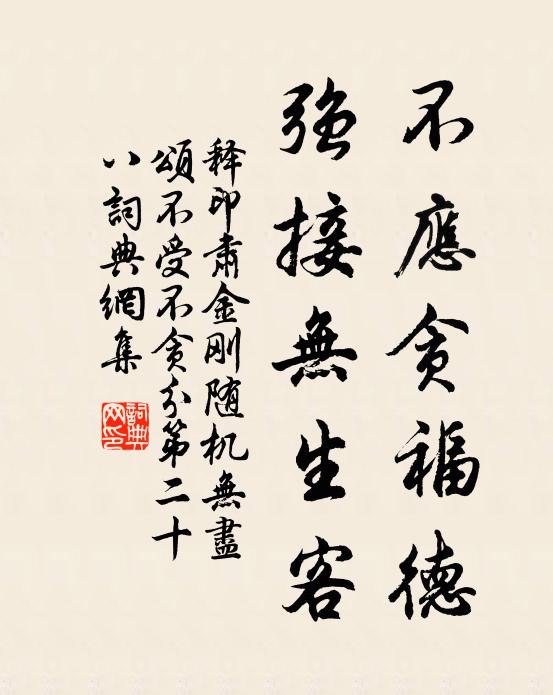 不應貪福德
強接無生客
释印肃金刚随机無盡
頌不受不贪分第二十
八詞典網集
詞典网印